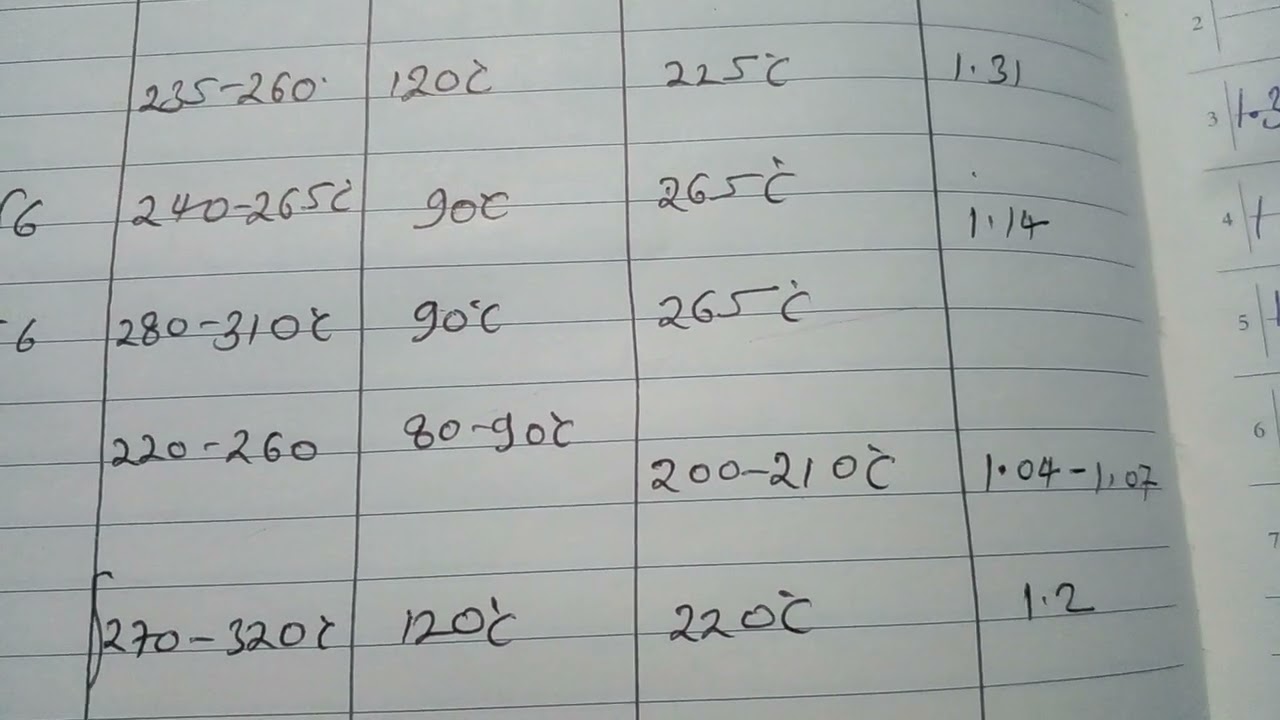 235-260 120°C 225°C 1.31
6 240-265°C 90°C 265°C 1.14
-6 280-310°C 90°C 265°C
220-260 80-90°C 200-210°C 1.04-1.07
270-320°C 120°C 220°C 1.2
2
3 1.3
4
5
6
7